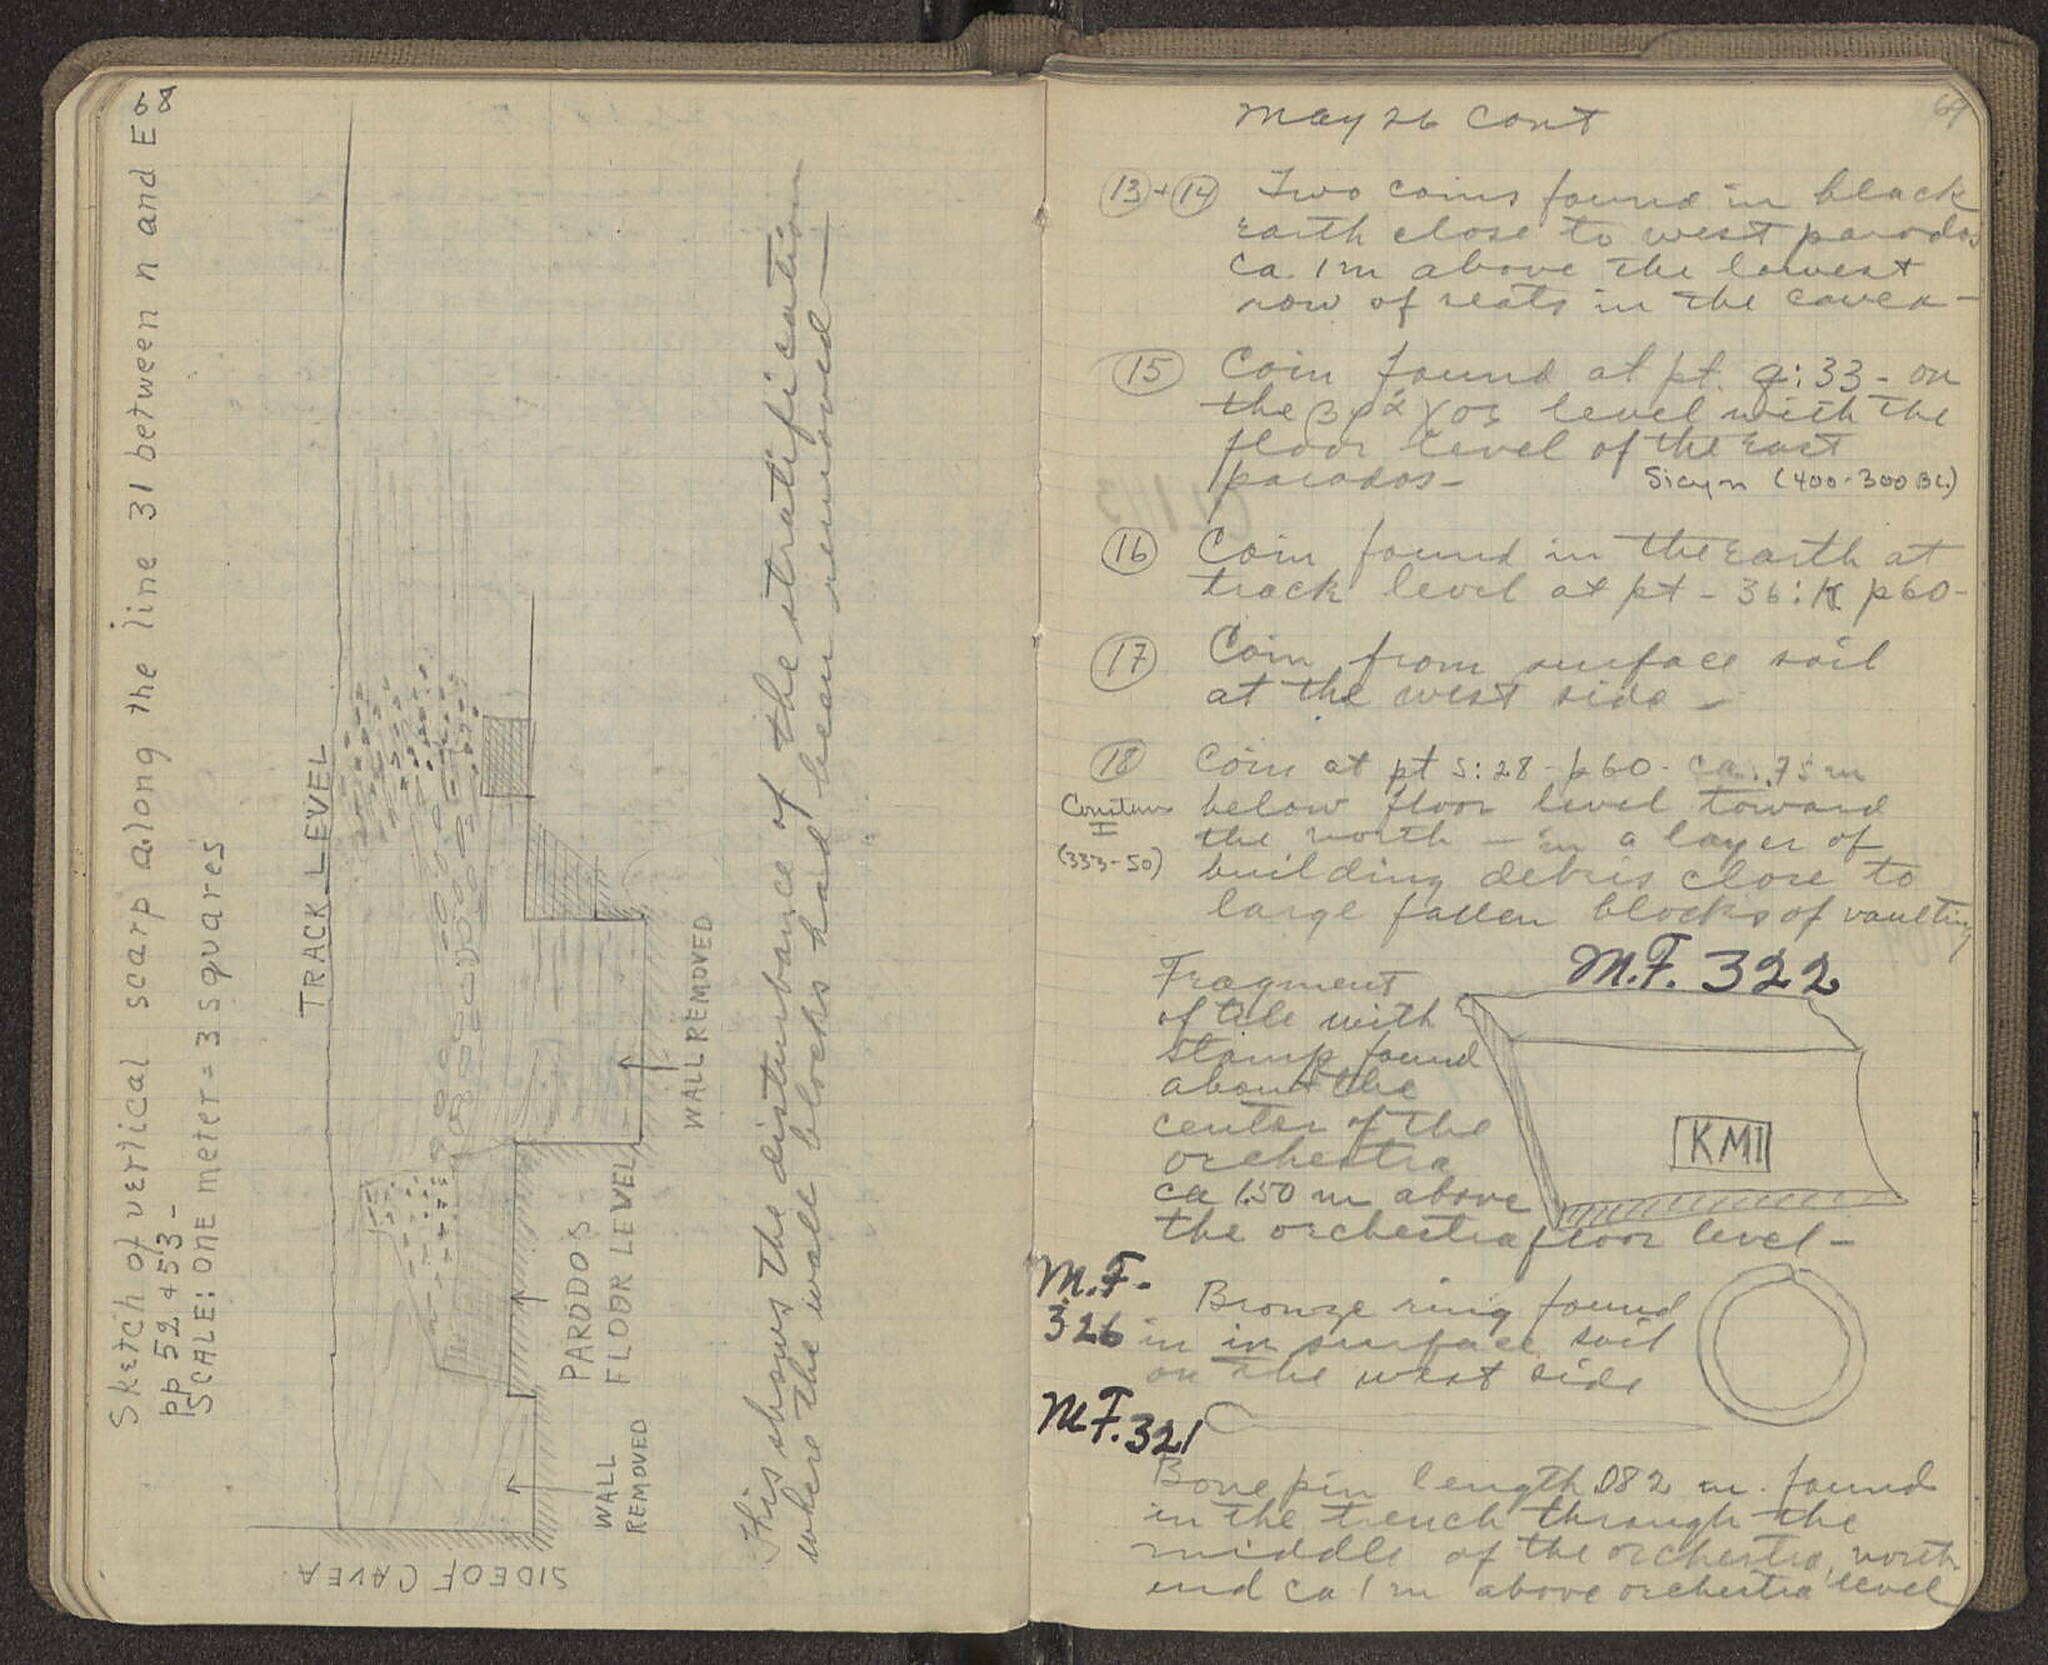 68
Sketch of vertical scarp along the line 31 between n and E
pp 52 + 53 -
SCALE: ONE meter = 3 squares
TRACK LEVEL
WALL REMOVED
PARODOS
FLOOR LEVEL
WALL
REMOVED
SIDE OF CAVEA
This shows the disturbance of the stratification
where the wall blocks had been removed —
69
May 26 Cont
13 + 14 Two coins found in black
earth close to west parodos
ca. 1 m above the lowest
row of seats in the cavea -
15 Coin found at pt. q:33 - on
the level with the
floor level of the east
parodos -
Sicyon (400-300 BC.)
16 Coin found in the earth at
track level at pt - 36:K p60-
17 Coin from surface soil
at the west side -
18 Coin at pt s:28 - p60 - ca .75 m
below floor level toward
the north - in a layer of
building debris close to
large fallen blocks of vaulting
Constans
I
(333-50)
M.F. 322
Fragment
of tile with
stamp found
about the
center of the
orchestra
ca 1.50 m above
the orchestra floor level -
KMII
M.F-
326
Bronze ring found
in in surface soil
on the west side
M.F. 321
Bone pin length .082 m. found
in the trench through the
middle of the orchestra, north
end ca 1 m above orchestra level